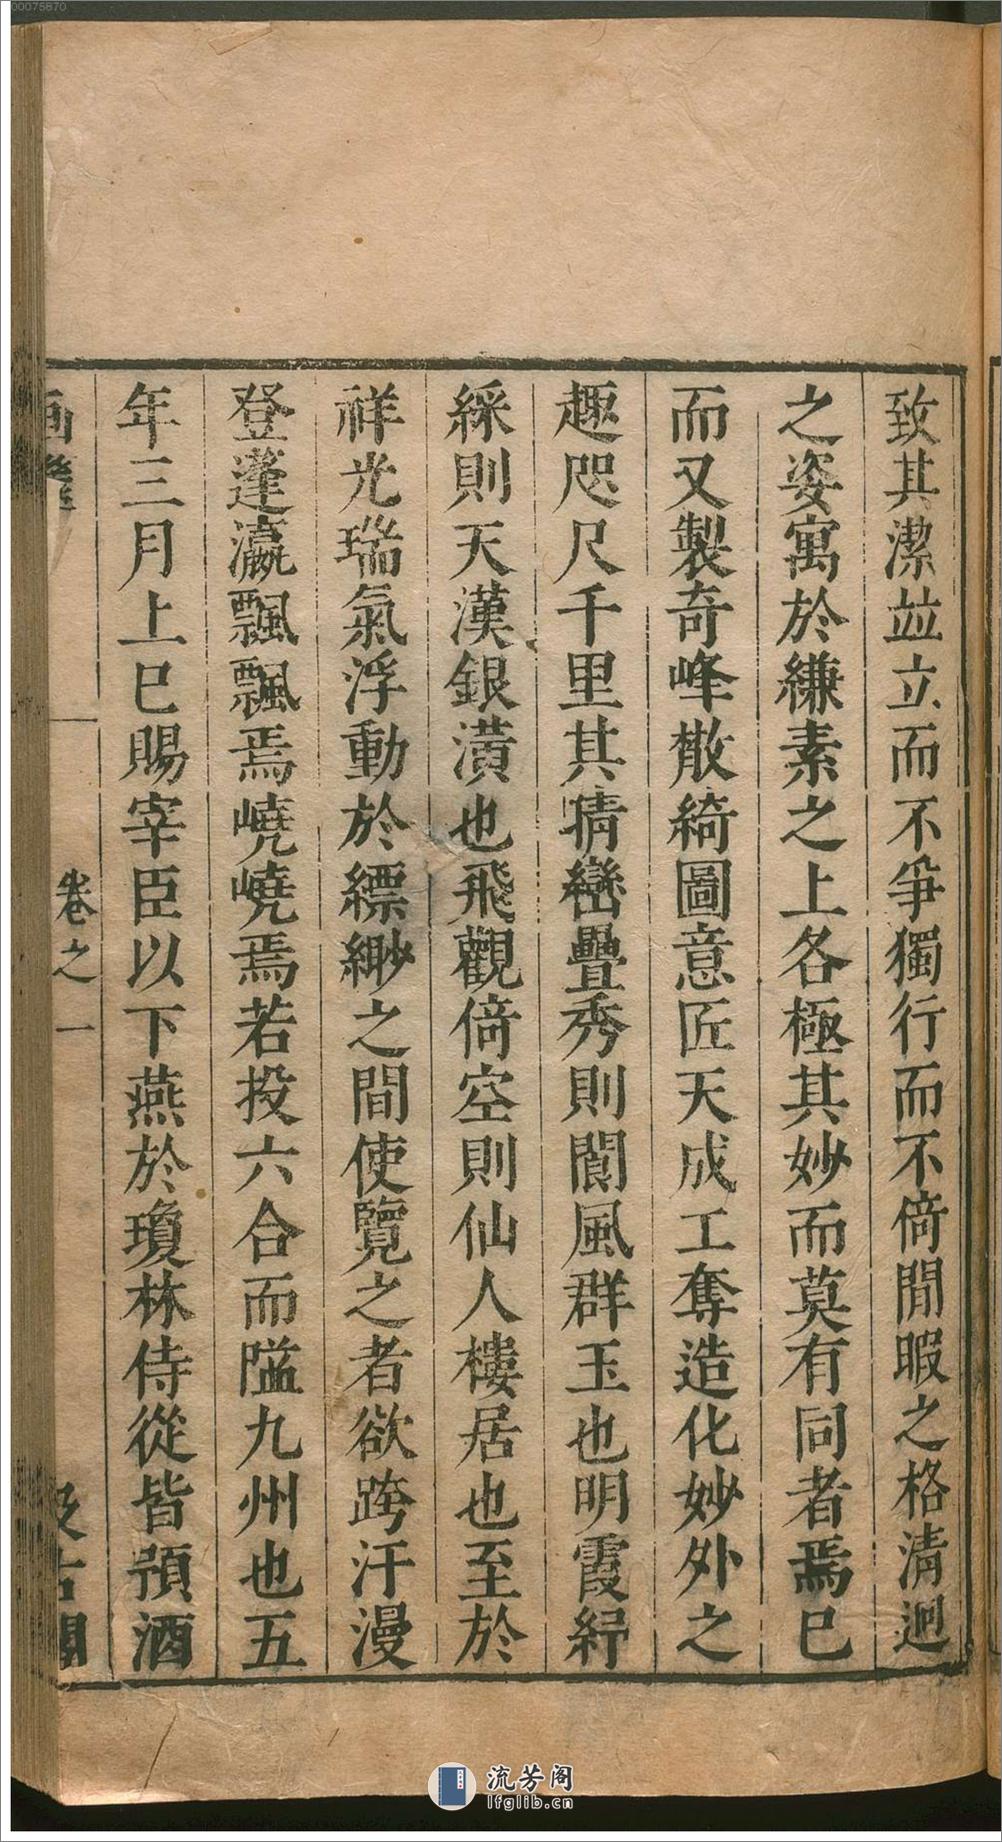 致其潔竝立而不爭獨行而不倚閒暇之格清迥
之姿寓於縑素之上各極其妙而莫有同者焉已
而又製奇峰散綺圖意匠天成工奪造化妙外之
趣咫尺千里其晴巒疊秀則閬風群玉也明霞紓
綵則天漢銀潢也飛觀倚空則仙人樓居也至於
祥光瑞氣浮動於縹緲之間使覽之者欲跨汗漫
登蓬瀛飄飄焉嶢嶢焉若投六合而隘九州也五
年三月上巳賜宰臣以下燕於瓊林侍從皆預酒
画繼
卷之一
汲古閣
00075870
流芳阁
lfglib.cn